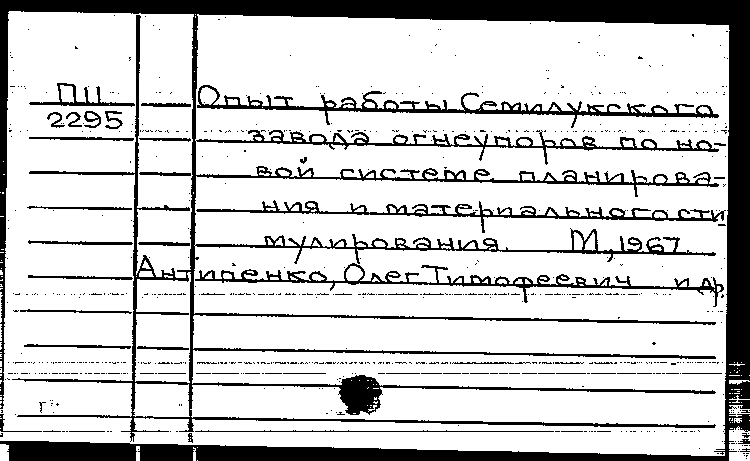 ПII Опыт работы Семилукского
2295 завода огнеупоров по но-
вой системе планирова-
ния и материального сти
мулирования. М., 1967.
Антипенко, Олег Тимофеевич и др.